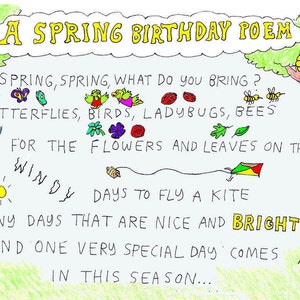 A SPRING BIRTHDAY POEM
SPRING, SPRING, WHAT DO YOU BRING?
BUTTERFLIES, BIRDS, LADYBUGS, BEES
FOR THE FLOWERS AND LEAVES ON TH
WINDY
DAYS TO FLY A KITE
NY DAYS THAT ARE NICE AND BRIGHT
ND ONE VERY SPECIAL DAY COMES
IN THIS SEASON...